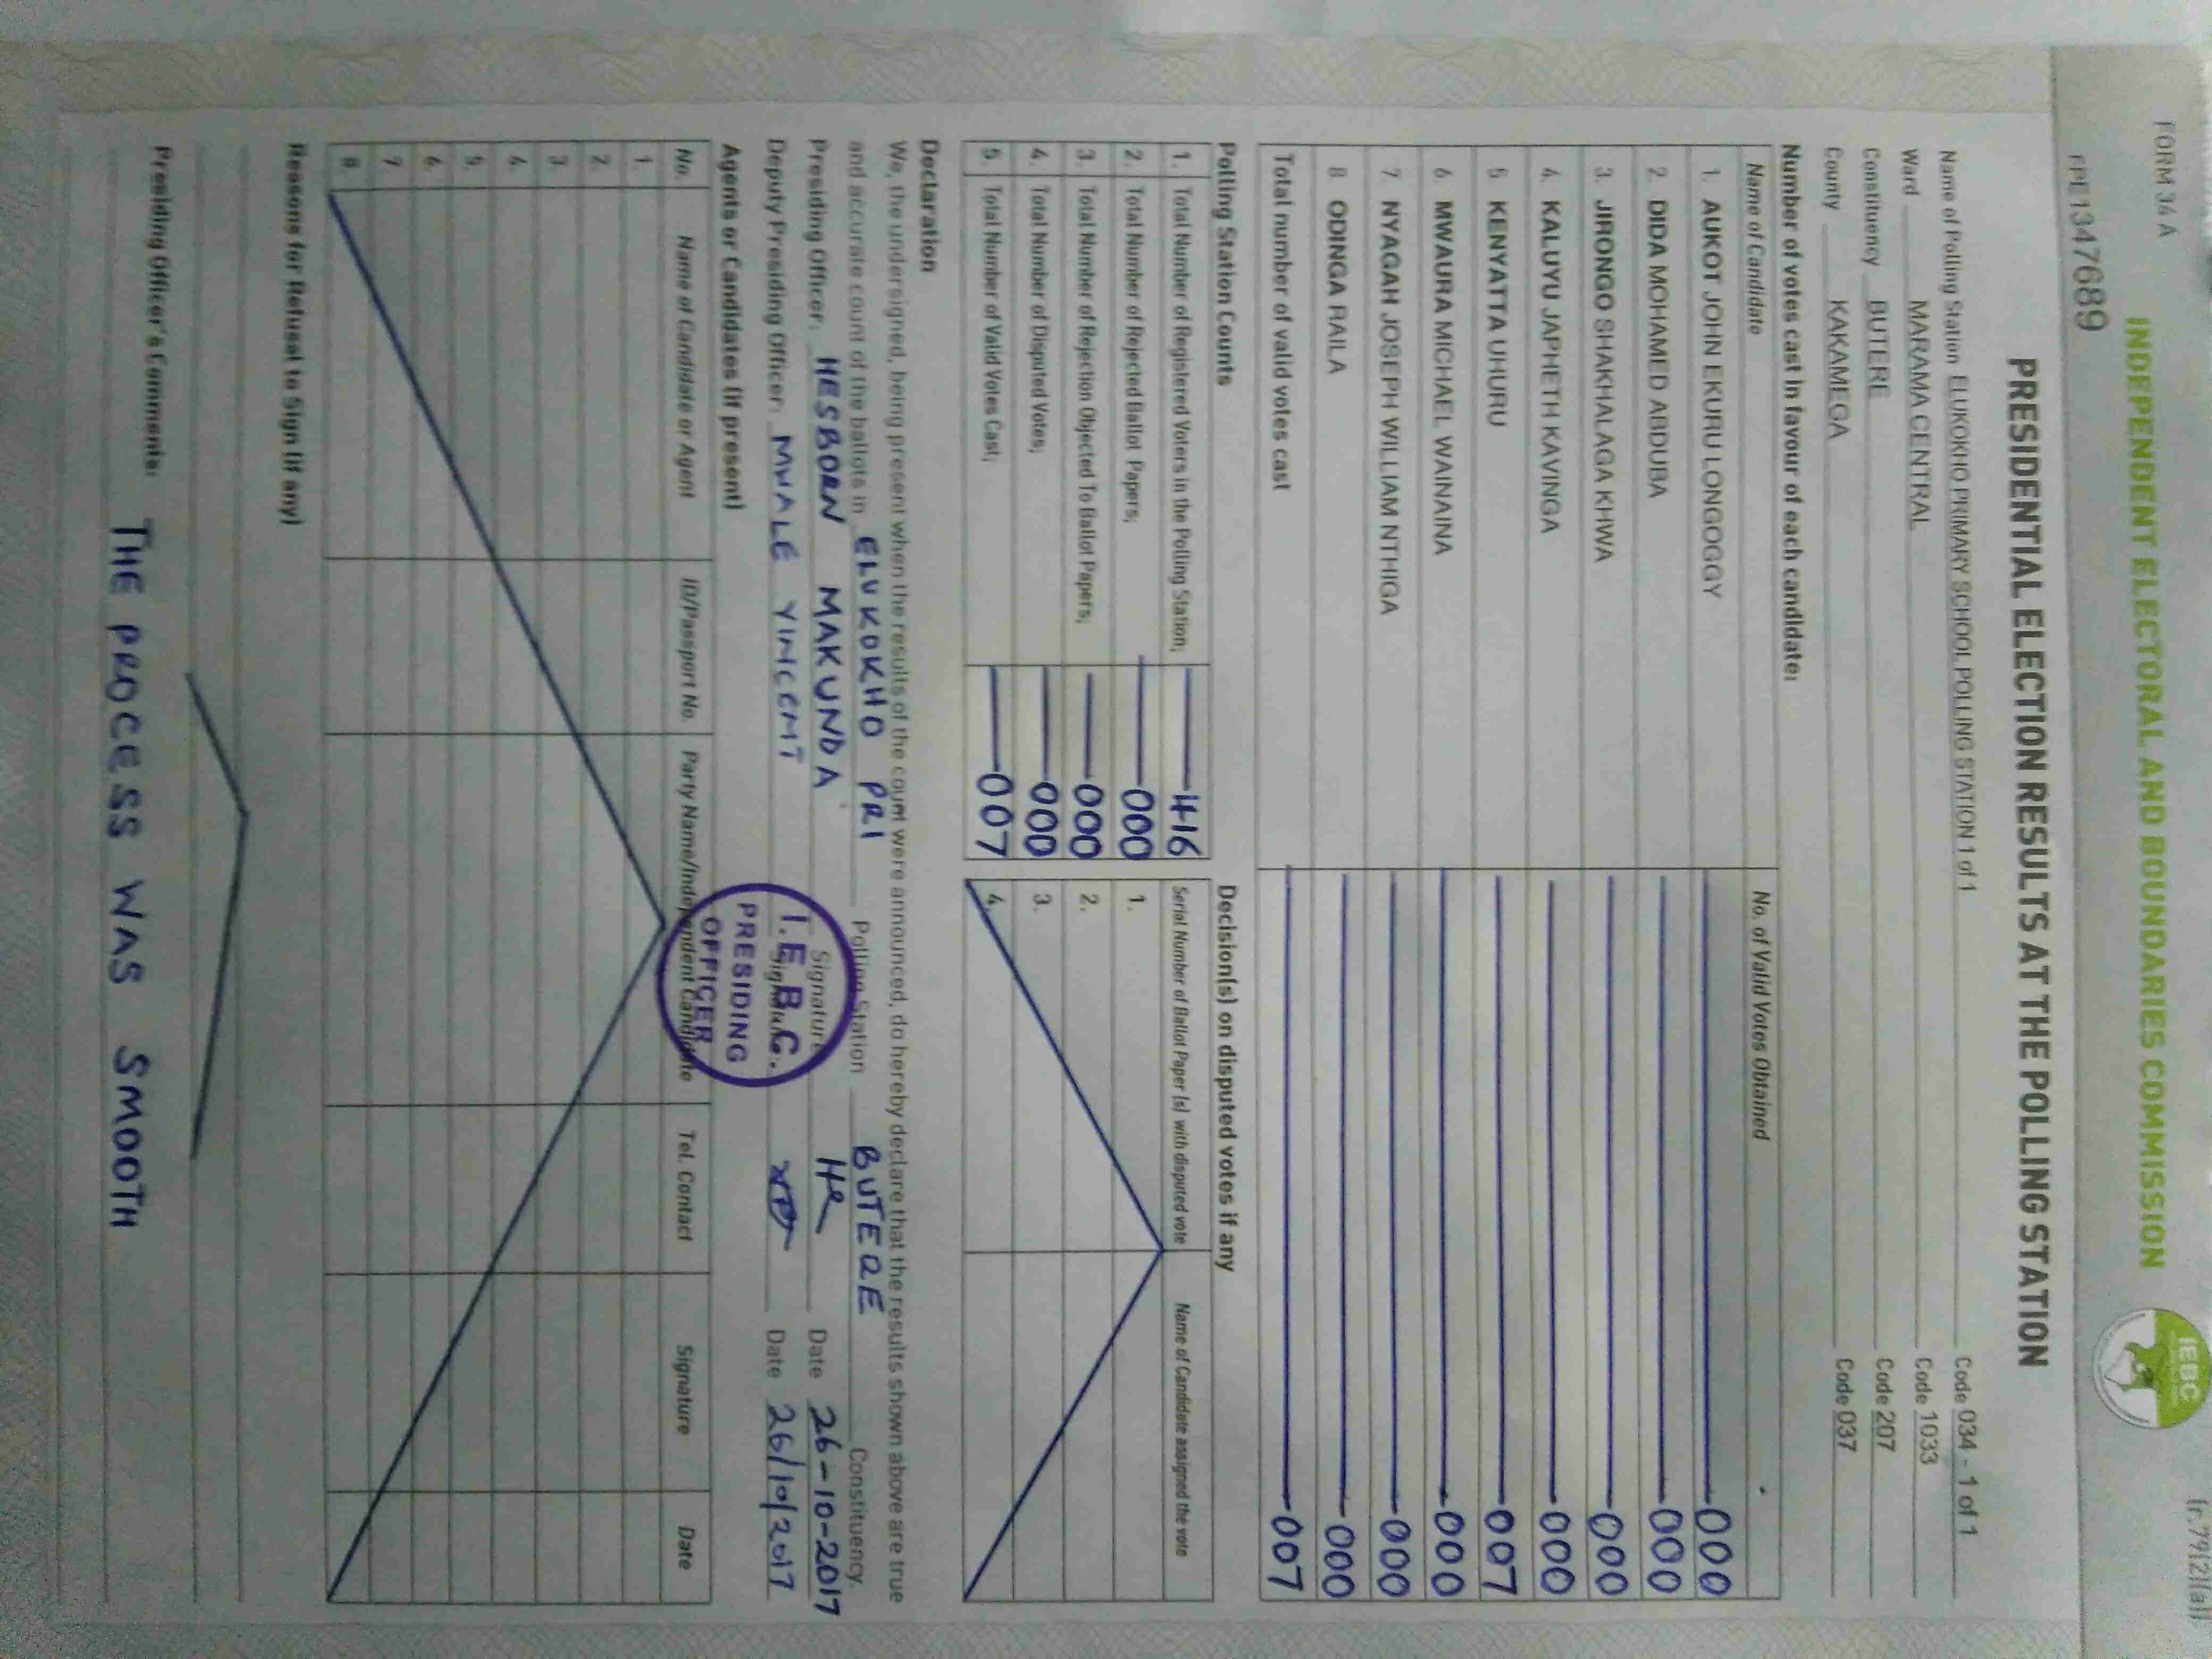 FORM 34 A
(r.79(2)(a))
INDEPENDENT ELECTORAL AND BOUNDARIES COMMISSION
IEBC
PE1347689
PRESIDENTIAL ELECTION RESULTS AT THE POLLING STATION
Name of Polling Station ELUKOKHO PRIMARY SCHOOL POLLING STATION 1 of 1 Code 034 - 1 of 1
Ward MARAMA CENTRAL Code 1033
Constituency BUTERE Code 207
County KAKAMEGA Code 037
Number of votes cast in favour of each candidate:
Name of Candidate No. of Valid Votes Obtained
1. AUKOT JOHN EKURU LONGOGGY 000
2. DIDA MOHAMED ABDUBA 000
3. JIRONGO SHAKHALAGA KHWA 000
4. KALUYU JAPHETH KAVINGA 000
5. KENYATTA UHURU 007
6. MWAURA MICHAEL WAINAINA 000
7. NYAGAH JOSEPH WILLIAM NTHIGA 000
8. ODINGA RAILA 000
Total number of valid votes cast 007
Polling Station Counts
1. Total Number of Registered Voters in the Polling Station; 416
2. Total Number of Rejected Ballot Papers; 000
3. Total Number of Rejection Objected To Ballot Papers; 000
4. Total Number of Disputed Votes; 000
5. Total Number of Valid Votes Cast; 007
Decision(s) on disputed votes if any
Serial Number of Ballot Paper (s) with disputed vote Name of Candidate assigned the vote
1.
2.
3.
4.
Declaration
We, the undersigned, being present when the results of the count were announced, do hereby declare that the results shown above are true
and accurate count of the ballots in ELUKOKHO PRI Polling Station BUTERE Constituency.
Presiding Officer: HESBORN MAKUNDA Signature Date 26-10-2017
Deputy Presiding Officer: MWALE VINCENT Signature Date 26/10/2017
I.E.B.C.
PRESIDING
OFFICER
Agents or Candidates (if present)
No. Name of Candidate or Agent ID/Passport No. Party Name/Independent Candidate Tel. Contact Signature Date
1.
2.
3.
4.
5.
6.
7.
8.
Reasons for Refusal to Sign (if any)
Presiding Officer's Comments: THE PROCESS WAS SMOOTH